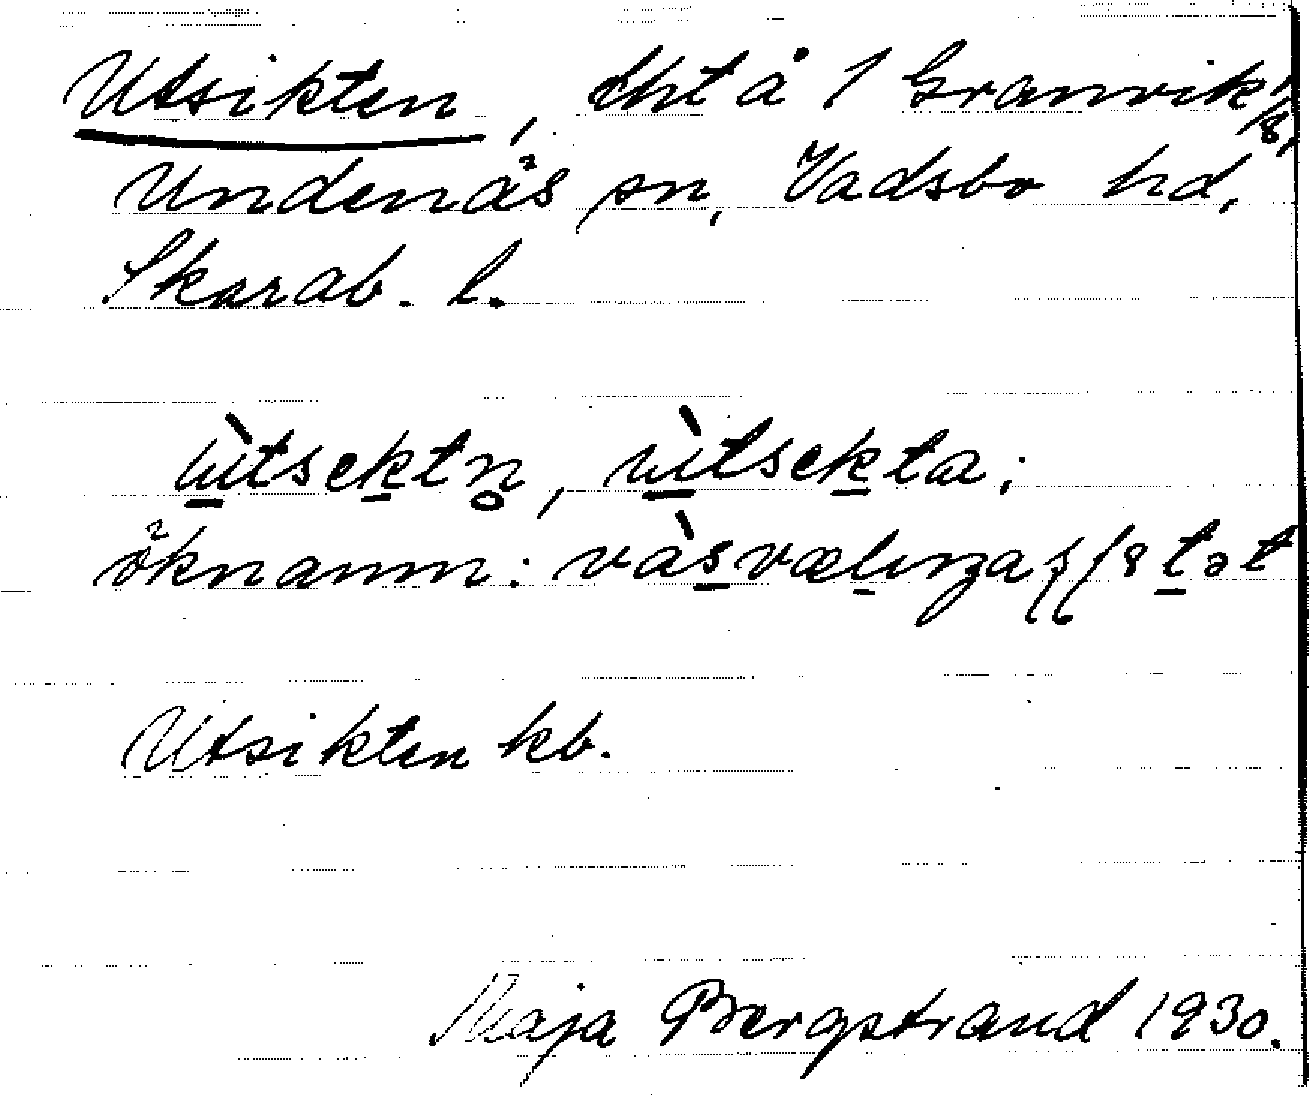 Utsikten, tht å 1 Granvik 1/8,
Undenäs sn, Vadsbo hd,
Skarab. l.
ùtsektn̥, ùtsekta;
öknamn:
Utsikten kb.
Maja Bergstrand 1930.